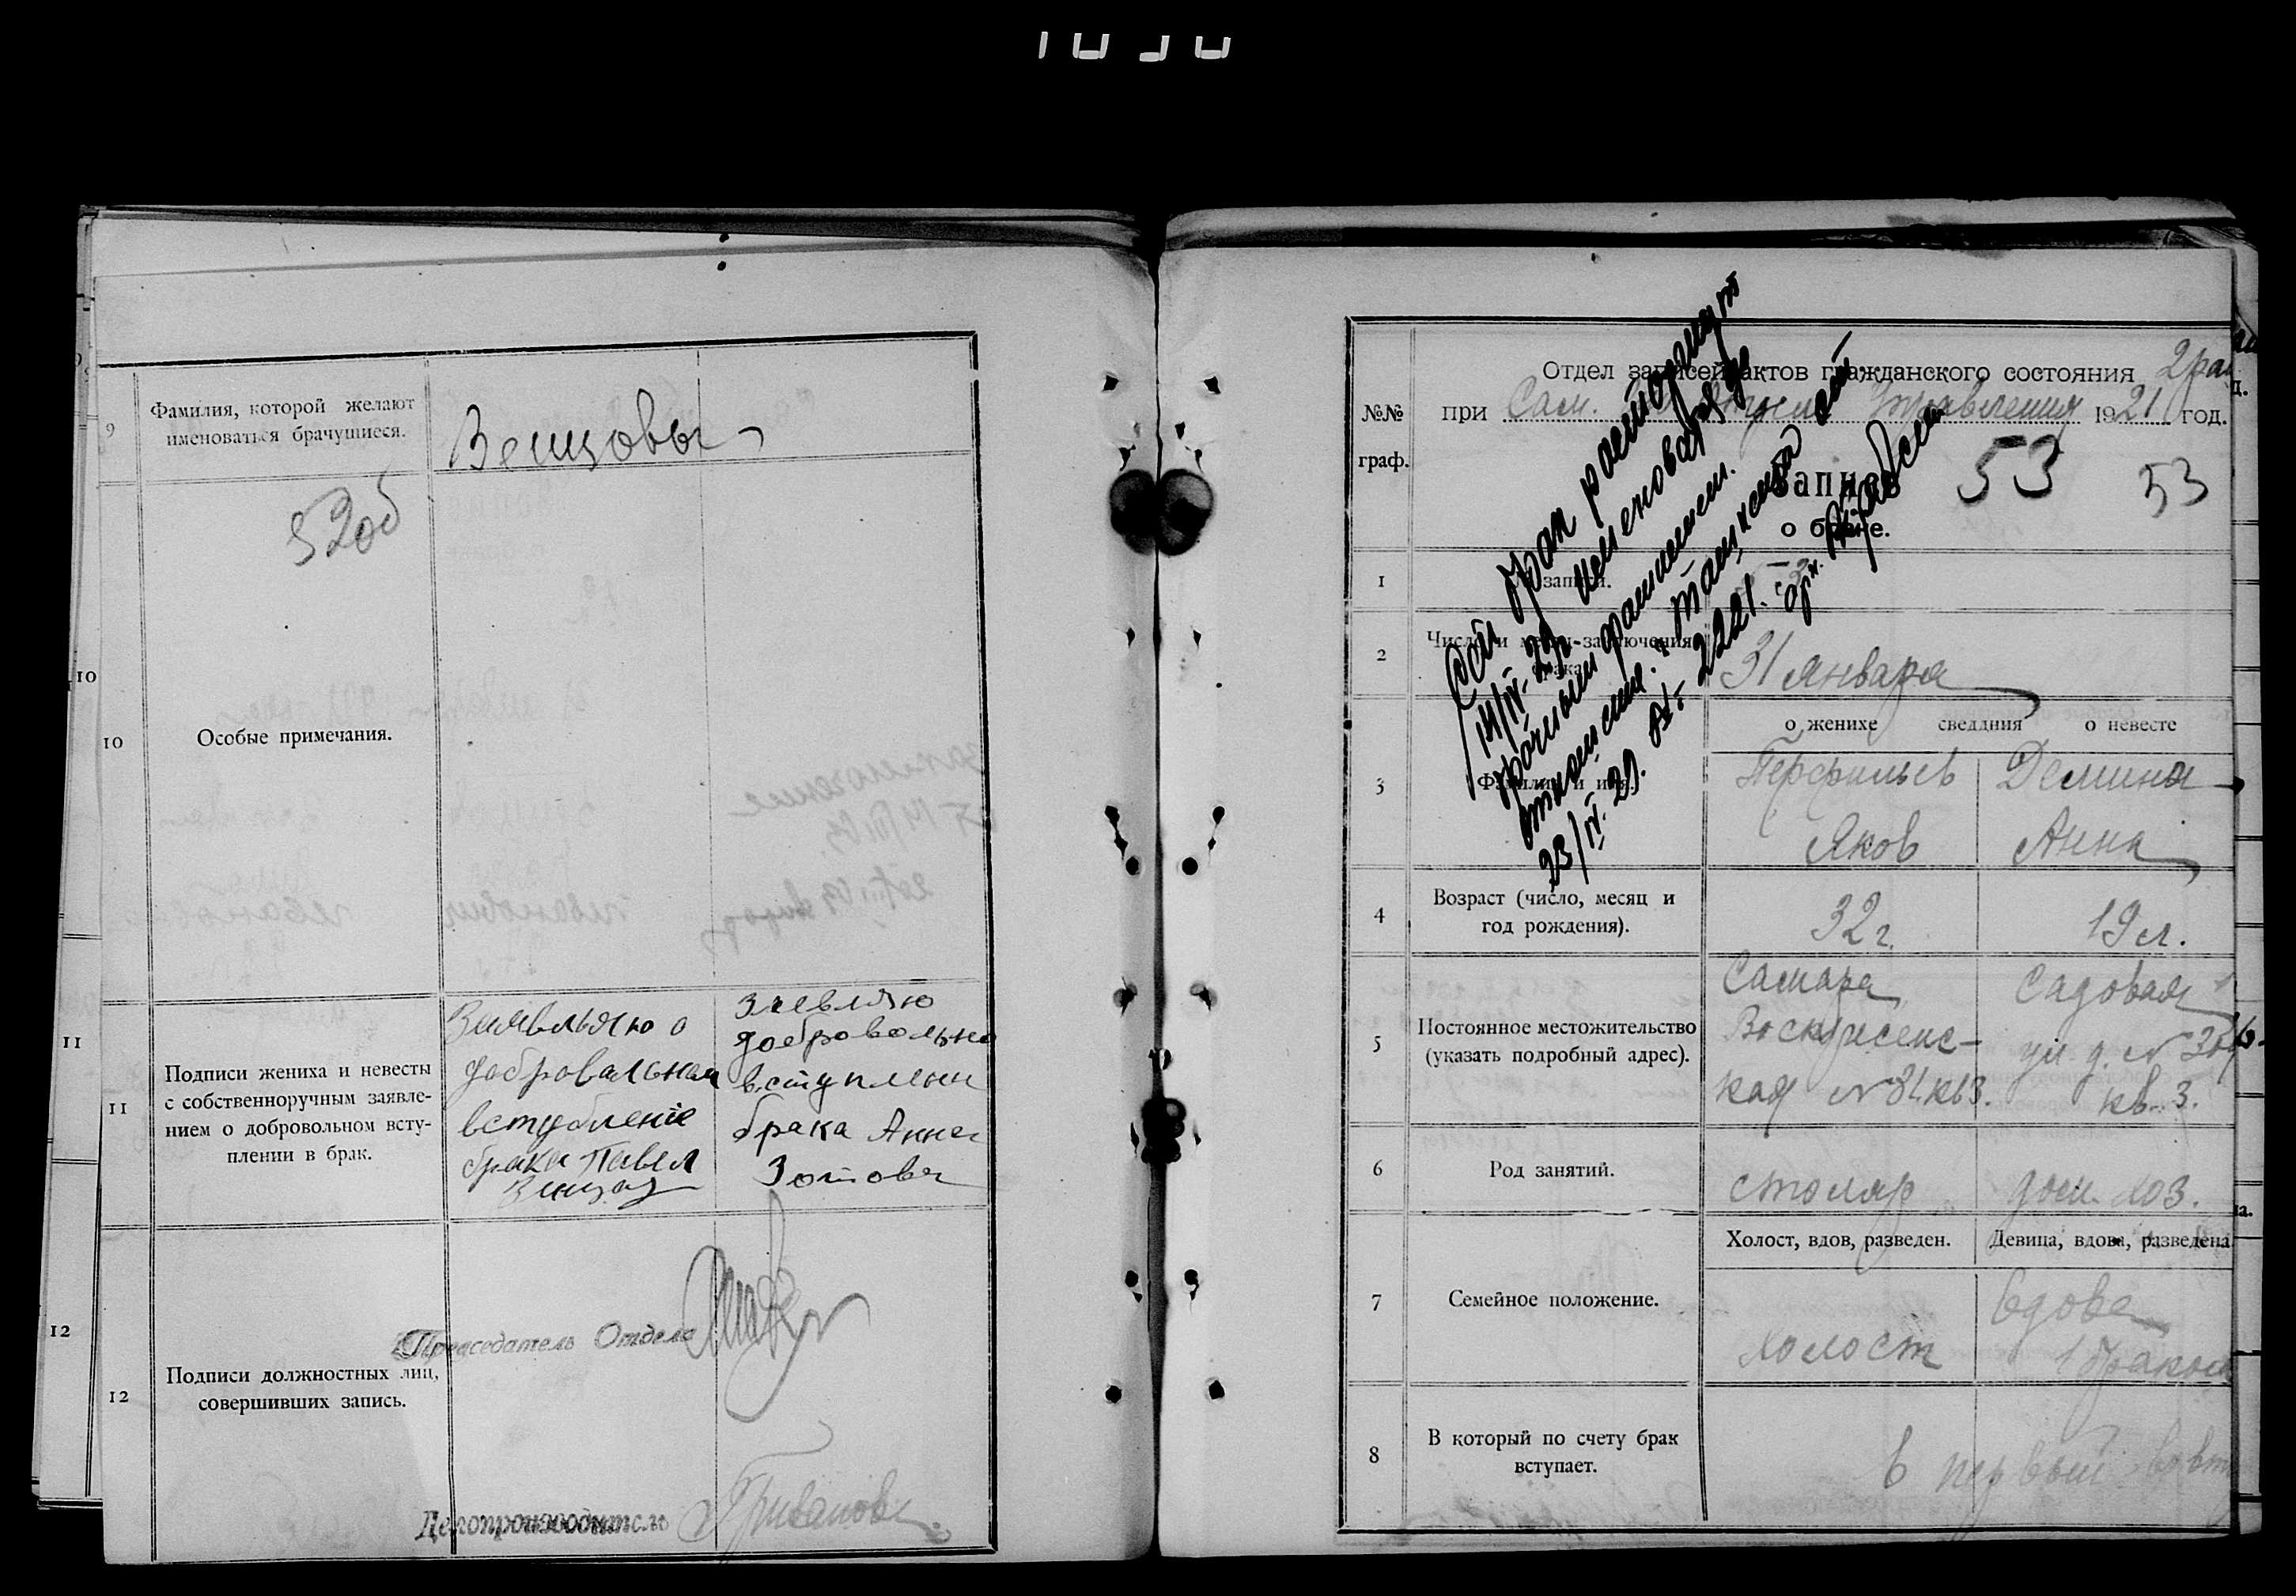 9
Фамилия, которой желают
именоваться брачущиеся.
Венцовы
52об
10
10
Особые примечания.
11
11
Подписи жениха и невесты
с собственноручным заявле-
нием о добровольном всту-
плении в брак.
добровальном
вступление
брака Павел
добровольно
вступлени
брака Анна
Зотова
12
12
Подписи должностных лиц,
совершивших запись.
Председатель Отдела
Делопроизводитель
№№
граф.
Отдел записей актов гражданского состояния
при Сам. Управления 1921 год.
Запись 53 53
о браке.
Сей брак расторгнут
14/IV-29
именоват
брачными фамилиями.
23/IV. 29. 2221.
1
записи.
2
Число и месяц заключения
брака
31 января
о женихе сведдния о невесте
3
Фамилия и имя.
Перфильев Демина
Яков Анна
4
Возраст (число, месяц и
год рождения).
32 г. 19 л.
5
Постоянное местожительство
(указать подробный адрес).
Самара
Воскресенс-
кая № 31. кв 3.
Садовая
ул. д. №
кв. 3.
6
Род занятий.
столяр дом. хоз.
Холост, вдов, разведен. Девица, вдова, разведена
7
Семейное положение.
холост
вдова
1 браком
8
В который по счету брак
вступает.
в первый